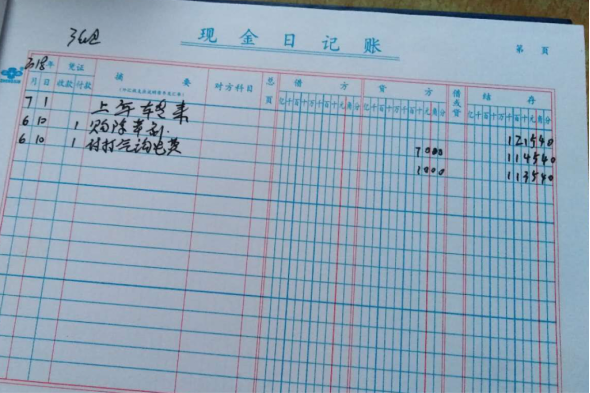 3组
现金日记账
第 页
2018年 凭证 摘要 对方科目 总页 借方 贷方 借或贷 结存
月 日 收款 付款 亿千百十万千百十元角分 亿千百十万千百十元角分 亿千百十万千百十元角分
7 1 上年转来 121540
6 10 1 购除草剂 7000 114540
6 10 1 付打气沟电费 1000 113540